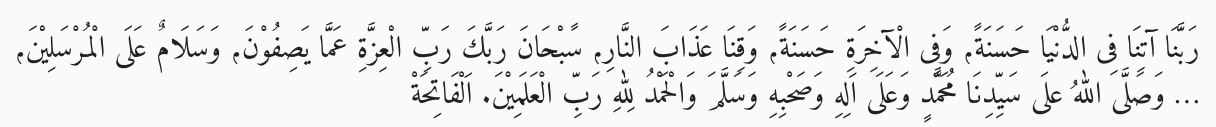 رَبَّنَا آتِنَا فِى الدُّنْيَا حَسَنَةً. وَفِى الْآخِرَةِ حَسَنَةً. وَقِنَا عَذَابَ النَّارِ. سًبْحَانَ رَبَّكَ رَبِّ الْعِزَّةِ عَمَّا يَصِفُوْنَ. وَسَلَامٌ عَلَى الْمُرْسَلِيْنَ.
... وَصَلَّى اللهُ علَى سَيِّدِنَا مُحَمَّدٍ وَعَلَى اَلِهِ وَصَحْبِهِ وَسَلَّمَ وَالْحَمْدُ لِلهِ رَبِّ الْعَلَمِيْنَ. اَلْفَاتِحَةْ